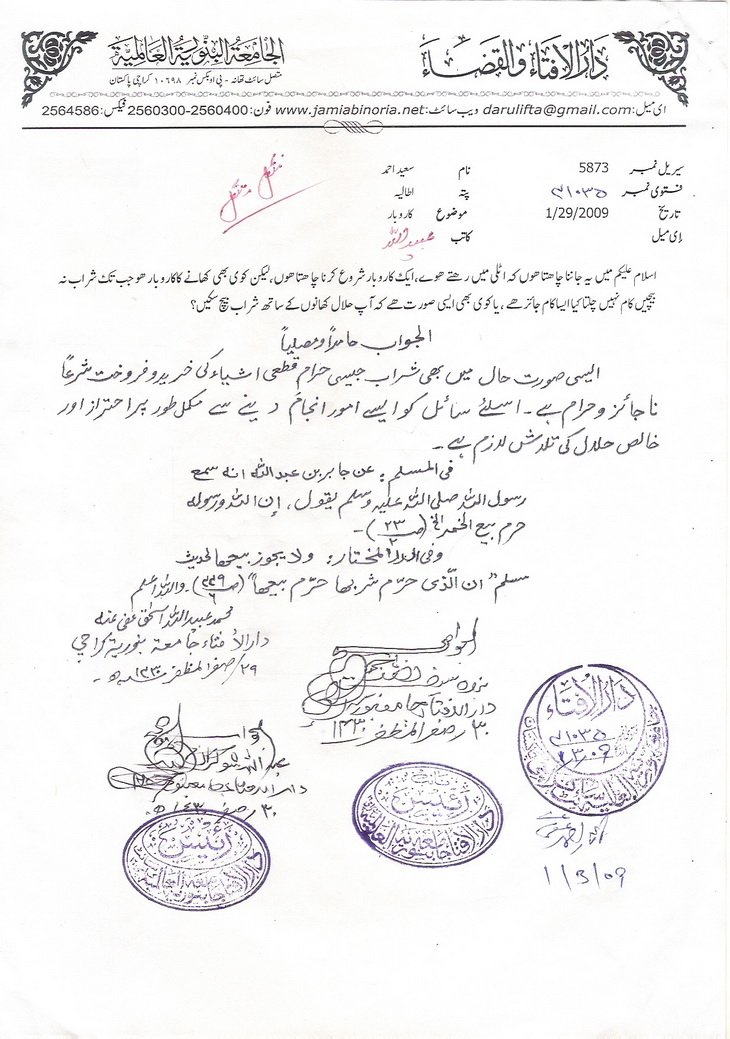 دارالافتاء والقضاء
الجامعة البنورية العالمية
متصل سائٹ تھانہ - پی او بکس نمبر ۱۰۶۹۸ کراچی پاکستان
ای میل: darulifta@gmail.com ویب سائٹ: www.jamiabinoria.net فون: 2560300-2560400 فیکس: 2564586
سیریل نمبر 5873 نام سعید احمد
فتوی نمبر ۲۱۰۳۵ پتہ اطالیہ
تاریخ 1/29/2009 موضوع کاروبار
ای میل کاتب عبیداللہ
اسلام علیکم میں یہ جاننا چاھتا ھوں کہ اٹلی میں رھتے ھوے، ایک کاروبار شروع کرنا چاھتا ھوں، لیکن کوی بھی کھانے کا کاروبار ھو جب تک شراب نہ
بیچیں کام نہیں چلتا کیا ایسا کام جائز ھے، یا کوی بھی ایسی صورت ھے کہ آپ حلال کھانوں کے ساتھ شراب بیچ سکیں؟
الجواب حامداً ومصلیاً
ایسی صورت حال میں بھی شراب جیسی حرام قطعی اشیاء کی خریدوفروخت شرعاً
ناجائز وحرام ہے۔ اسلئے سائل کو ایسے امور انجام دینے سے مکمل طور پر احتراز اور
خالص حلال کی تلاش لازم ہے۔
فی المسلم: عن جابر بن عبداللہ انہ سمع
رسول اللہ صلی اللہ علیہ وسلم یقول، إن اللہ ورسولہ
حرم بیع الخمر الخ (ص ۲۳/۲)۔
وفی الدر المختار: ولا یجوز بیعھا لحدیث
مسلم "ان الّذی حرّم شربھا حرّم بیعھا" (ص ۴۴۹/۶)۔ واللہ اعلم
محمد عبیداللہ اسحٰق عفی عنہ
دارالافتاء جامعہ بنوریہ کراچی
۲۹/صفر المظفر ۱۴۳۰ھ۔
الجواب صحیح
دارالافتاء جامعہ بنوریہ
۳۰/صفر المظفر ۱۴۳۰
دارالافتاء جامعہ بنوریہ
۳۰/صفر ۱۴۳۰ھ
دارالافتاء
۲۱۰۳۵
رئیس
دارالافتاء جامعہ بنوریہ العالمیہ
نائب رئیس
دارالافتاء جامعہ بنوریہ العالمیہ
1/3/09